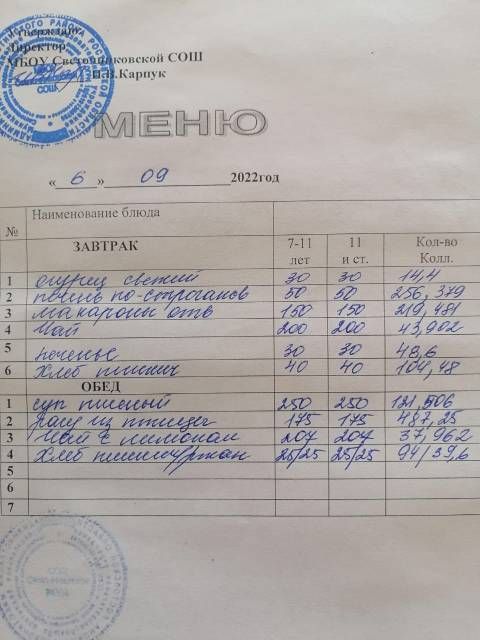 Утверждаю:
Директор
МБОУ Светочниковской СОШ
П.В.Карпук
МЕНЮ
« 6 » 09 2022год
№ Наименование блюда
ЗАВТРАК 7-11 лет 11 и ст. Кол-во Колл.
1 огурец свежий 30 30 14,4
2 печень по-строганов 50 50 256,379
3 макароны отв 150 150 219,481
4 Чай 200 200 43,902
5 печенье 30 30 48,6
6 Хлеб пшенич 40 40 104,48
ОБЕД
1 суп 250 250 121,506
2 рагу из птицы 175 175 487,25
3 Чай с лимоном 207 207 37,962
4 Хлеб пшен/ржан 25/25 25/25 94/39,6
5
6
7